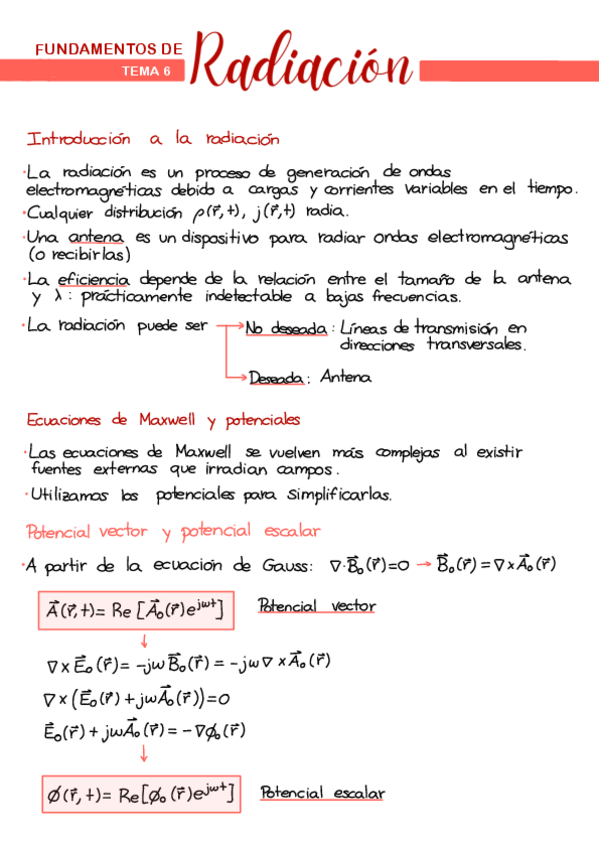 FUNDAMENTOS DE
TEMA 6
Radiación
Introducción a la radiación
·La radiación es un proceso de generación de ondas
electromagnéticas debido a cargas y corrientes variables en el tiempo.
·Cualquier distribución ρ(r⃗,t), j(r⃗,t) radia.
·Una antena es un dispositivo para radiar ondas electromagnéticas
(o recibirlas)
·La eficiencia depende de la relación entre el tamaño de la antena
y λ: prácticamente indetectable a bajas frecuencias.
·La radiación puede ser → No deseada: Líneas de transmisión en
direcciones transversales.
→ Deseada: Antena
Ecuaciones de Maxwell y potenciales
·Las ecuaciones de Maxwell se vuelven más complejas al existir
fuentes externas que irradian campos.
·Utilizamos los potenciales para simplificarlas.
Potencial vector y potencial escalar
·A partir de la ecuación de Gauss: ∇·B⃗₀(r⃗)=0 → B⃗₀(r⃗)=∇×A⃗₀(r⃗)
A⃗(r⃗,t)= Re[A⃗₀(r⃗)e^jωt] Potencial vector
↓
∇×E⃗₀(r⃗)= -jωB⃗₀(r⃗) = -jω∇×A⃗₀(r⃗)
∇×(E⃗₀(r⃗)+jωA⃗₀(r⃗))=0
E⃗₀(r⃗)+jωA⃗₀(r⃗)= -∇ø₀(r⃗)
↓
ø(r⃗,t)= Re[ø₀(r⃗)e^jωt] Potencial escalar